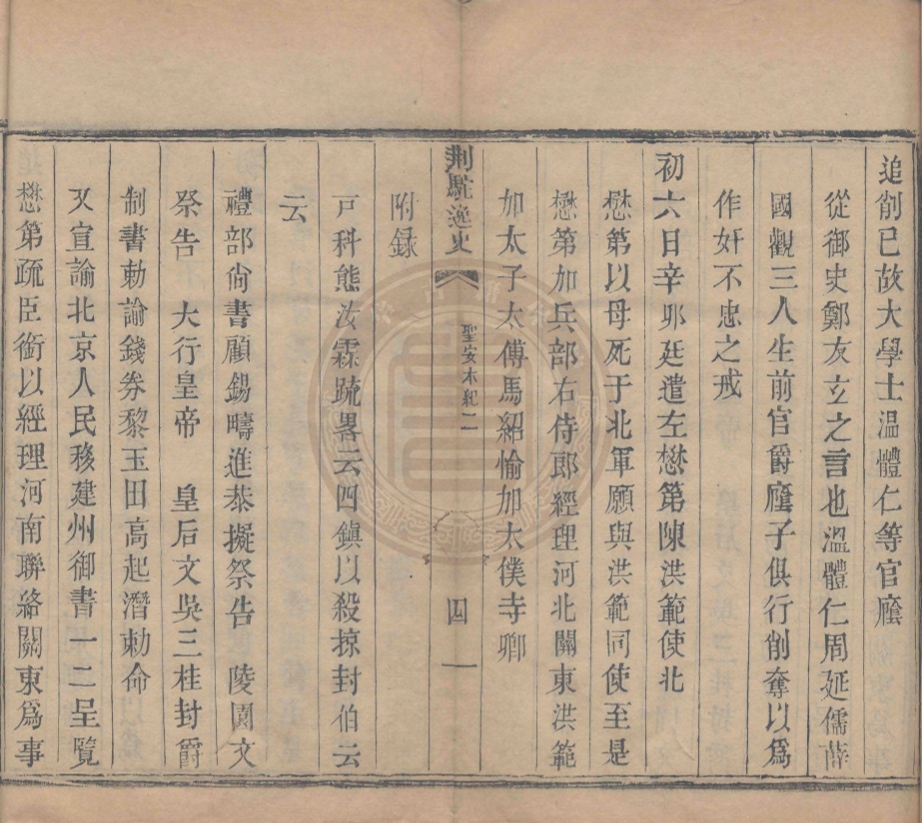 追削已故大學士温體仁等官廕
從御史鄭友玄之言也溫體仁周延儒薛
國觀三人生前官爵廕子俱行削奪以爲
作奸不忠之戒
初六日辛邜廷遣左懋第陳洪範使北
懋第以母死于北軍願與洪範同使至是
懋第加兵部右侍郎經理河北關東洪範
加太子太傅馬紹愉加太僕寺卿
荆駝逸史
聖安本紀一
四
附録
戸科熊汝霖䟽畧云四鎮以殺掠封伯云
云
禮部尙書顧錫疇進恭擬祭告　陵園文
祭告　大行皇帝　皇后文吳三桂封爵
制書勅諭錢券黎玉田高起潛勅命
又宣諭北京人民移建州御書一二呈覽
懋第疏臣銜以經理河南聯絡關東爲事